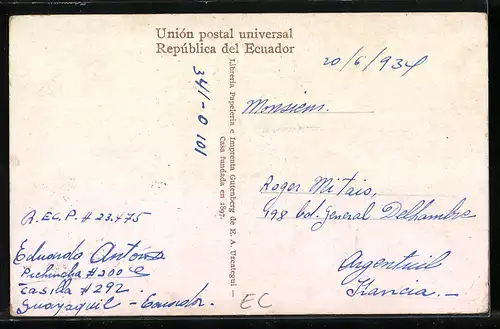 Unión postal universal
República del Ecuador
20/6/934
341-0 101
Librería Papelería e Imprenta Gutenberg de E. A. Uzcategui —
Casa fundada en 1897.
Monsieur.
Roger Mitais,
198 bd. General Delhambre
Argenteuil
Francia. —
R.EC.P. # 23.475
Eduardo
Pichincha # 200
Casilla # 292.
Guayaquil - Ecuador.
EC